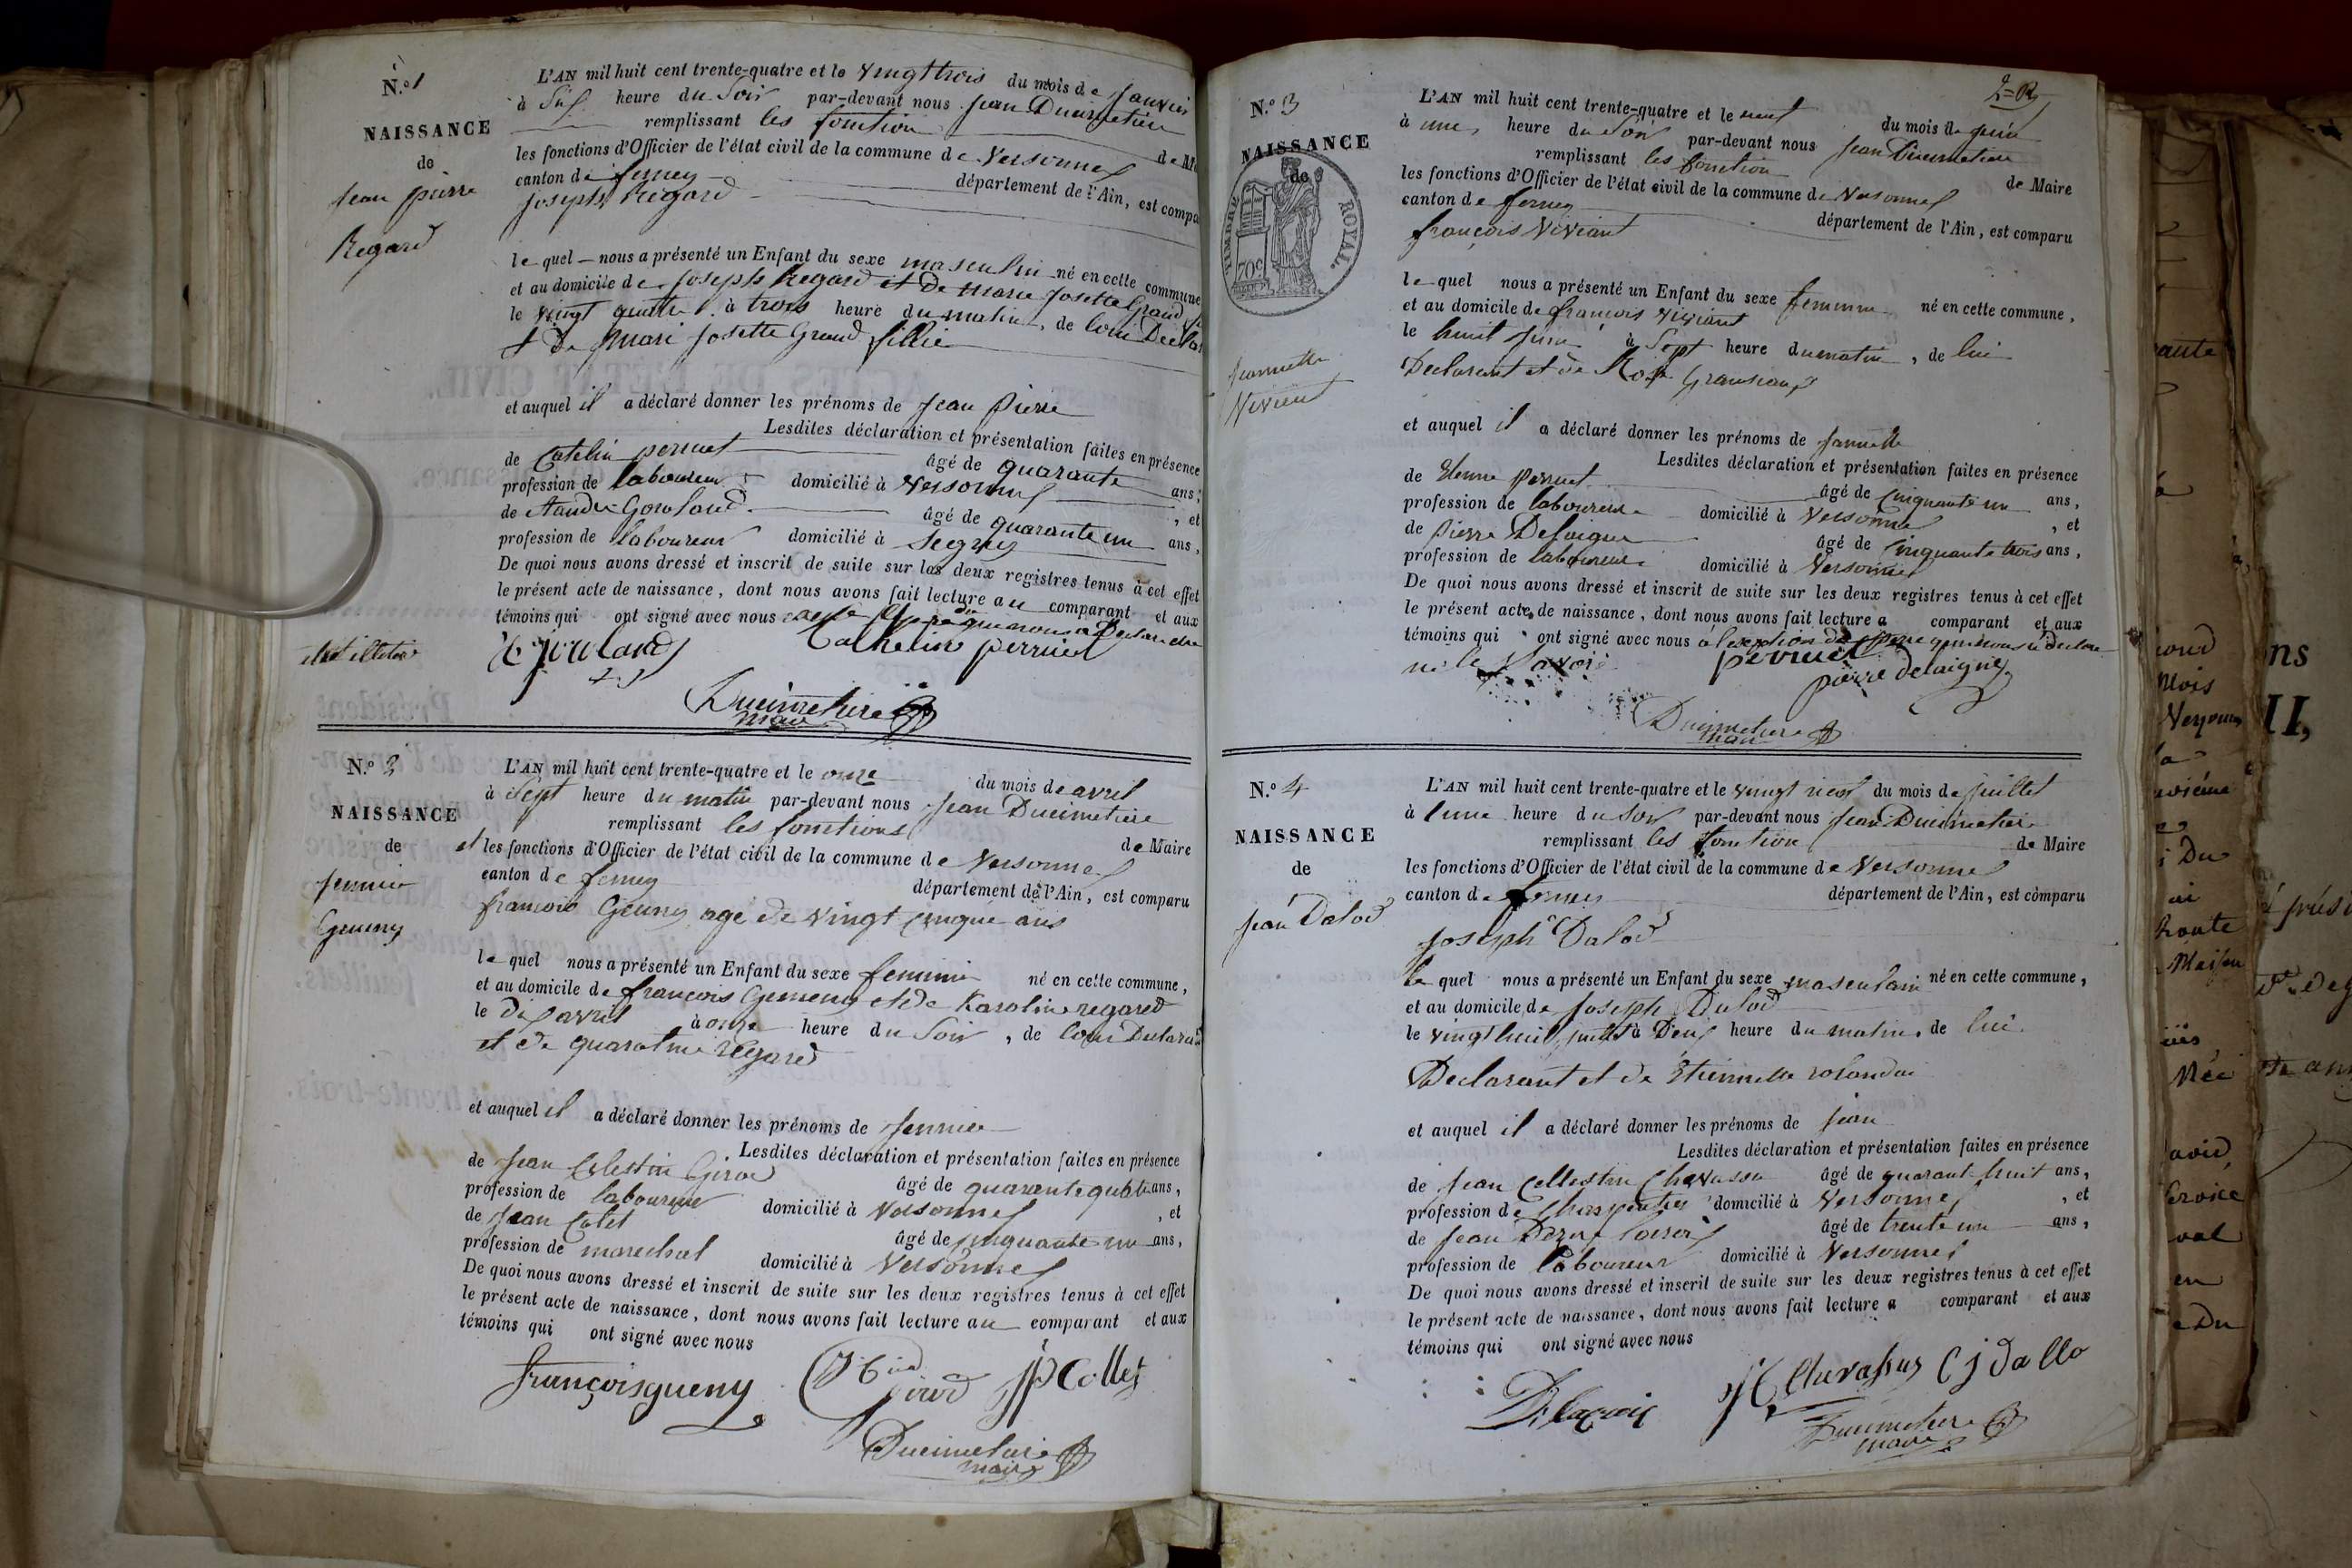 N.º 1
NAISSANCE
de
jean pierre
Regard
L'AN mil huit cent trente-quatre et le vingt trois du mois de janvier
à Six heure du Soir par-devant nous jean Ducimetiere
remplissant les fonction de M
les fonctions d'Officier de l'état civil de la commune de Versonnex
canton de ferney département de l'Ain, est compa
joseph Regard
le quel nous a présenté un Enfant du sexe masculin né en cette commune
et au domicile de joseph Regard et de marie josette Grand
le vingt à trois heure du matin, de
et de mari josette Grand fillie
et auquel il a déclaré donner les prénoms de jean pierre
Lesdites déclaration et présentation faites en présence
de Catelin perruet âgé de quarante ans,
profession de laboureur domicilié à Versonnex, et
de Gowland âgé de quarante un ans,
profession de laboureur domicilié à Segny
De quoi nous avons dressé et inscrit de suite sur les deux registres tenus à cet effet
le présent acte de naissance, dont nous avons fait lecture au comparant et aux
témoins qui ont signé avec nous
Cathelin perruet
Ducimetiere
maire
N.º 2
NAISSANCE
de
jennie
Gueny
L'AN mil huit cent trente-quatre et le onze du mois de avril
à Sept heure du matin par-devant nous jean Ducimetiere
remplissant les fonctions de Maire
et les fonctions d'Officier de l'état civil de la commune de Versonnex
canton de ferney département de l'Ain, est comparu
francois Gueny age de vingt cinque ans
le quel nous a présenté un Enfant du sexe feminin né en cette commune,
et au domicile de françois Gueny et de Karoline regard
le dix avril à onze heure du Soir, de
et de quaroline Regard
et auquel il a déclaré donner les prénoms de jennie
Lesdites déclaration et présentation faites en présence
de jean Celestin Girod âgé de quarante quatre ans,
profession de laboureur domicilié à Versonnex, et
de jean Colet âgé de cinquante un ans,
profession de marechal domicilié à Versonnex
De quoi nous avons dressé et inscrit de suite sur les deux registres tenus à cet effet
le présent acte de naissance, dont nous avons fait lecture au comparant et aux
témoins qui ont signé avec nous
françois gueny Girod Collet
Ducimetiere
maire
N.º 3
NAISSANCE
de
TIMBRE ROYAL.
70c
jeannette
Viviant
L'AN mil huit cent trente-quatre et le neuf du mois de juin
à une heure du Soir par-devant nous jean Ducimetiere
remplissant les fonction de Maire
les fonctions d'Officier de l'état civil de la commune de Versonnex
canton de ferney département de l'Ain, est comparu
françois Viviant
le quel nous a présenté un Enfant du sexe feminin né en cette commune,
et au domicile de francois Viviant
le huit juin à Sept heure du matin, de lui
Declarant et de Rose
et auquel il a déclaré donner les prénoms de
Lesdites déclaration et présentation faites en présence
de Etienne perruet âgé de cinquante un ans,
profession de laboureur domicilié à Versonnex, et
de pierre Delaigue âgé de cinquante trois ans,
profession de laboureur domicilié à Versonnex
De quoi nous avons dressé et inscrit de suite sur les deux registres tenus à cet effet
le présent acte de naissance, dont nous avons fait lecture a comparant et aux
témoins qui ont signé avec nous à l'exeption du pere qui nous a declare
ne le Savoir
perruet
pierre delaigue
Ducimetiere
maire
N.º 4
NAISSANCE
de
jean Dalod
L'AN mil huit cent trente-quatre et le vingt neuf du mois de juillet
à lune heure du Soir par-devant nous jean Ducimetiere
remplissant les fonction de Maire
les fonctions d'Officier de l'état civil de la commune de Versonnex
canton de ferney département de l'Ain, est comparu
joseph Dalod
le quel nous a présenté un Enfant du sexe masculain né en cette commune,
et au domicile de joseph Dalod
le vingt huit juillet à Deux heure du matin, de lui
Declarant et de Etiennette
et auquel il a déclaré donner les prénoms de jean
Lesdites déclaration et présentation faites en présence
de jean Cellestin Chavassu âgé de quarant huit ans,
profession de Charpentier domicilié à Versonnex, et
de jean âgé de trente un ans,
profession de laboureur domicilié à Versonnex
De quoi nous avons dressé et inscrit de suite sur les deux registres tenus à cet effet
le présent acte de naissance, dont nous avons fait lecture a comparant et aux
témoins qui ont signé avec nous
C j dallo
Ducimetiere
maire